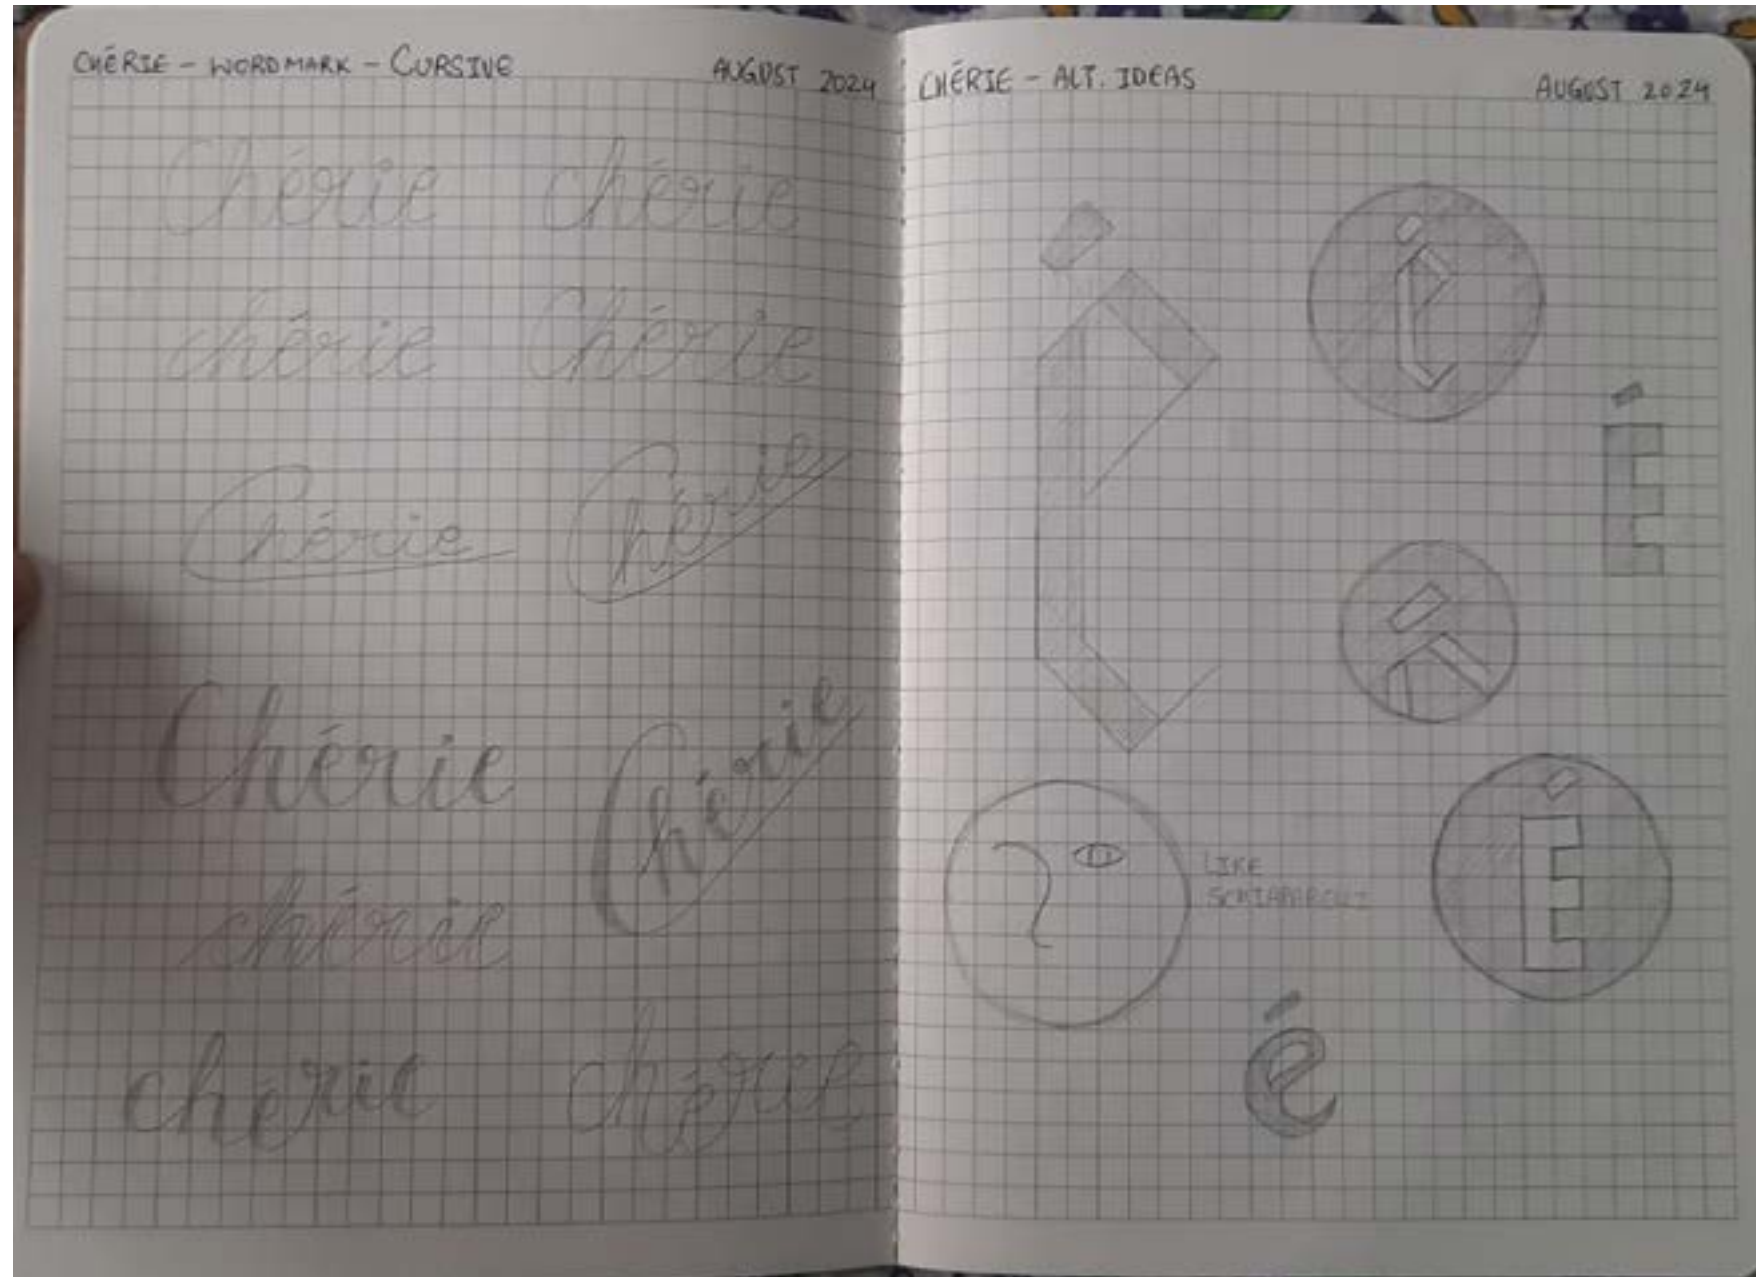 CHÉRIE - WORDMARK - CURSIVE
AUGUST 2024
Chérie chérie
chérie Chérie
Chérie Chérie
Chérie Chérie
chérie
chérie chérie
CHÉRIE - ALT. IDEAS
AUGUST 2024
É
É
LIKE
é